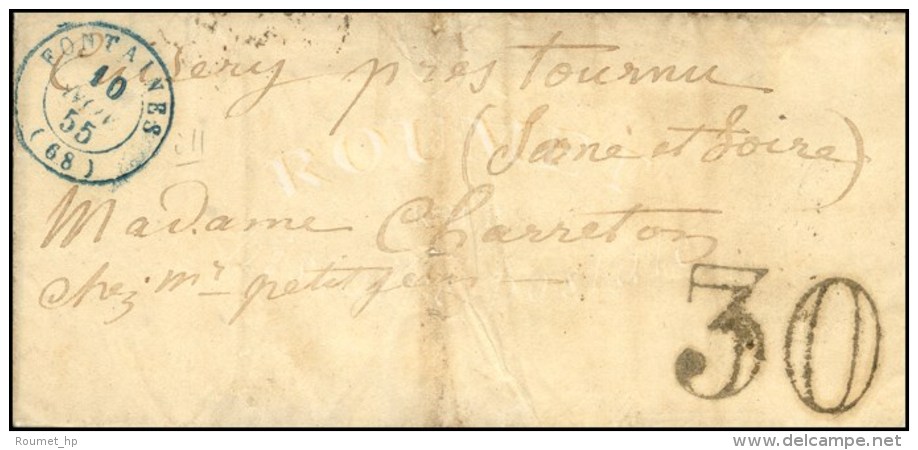 FONTAINES
10
NOV.
55
(68)
Cuisery près tournu
(Saône et Loire)
Madame Charreton
chez mr petitjean
30
ROUMET
Roumet_hp
www.delcampe.net